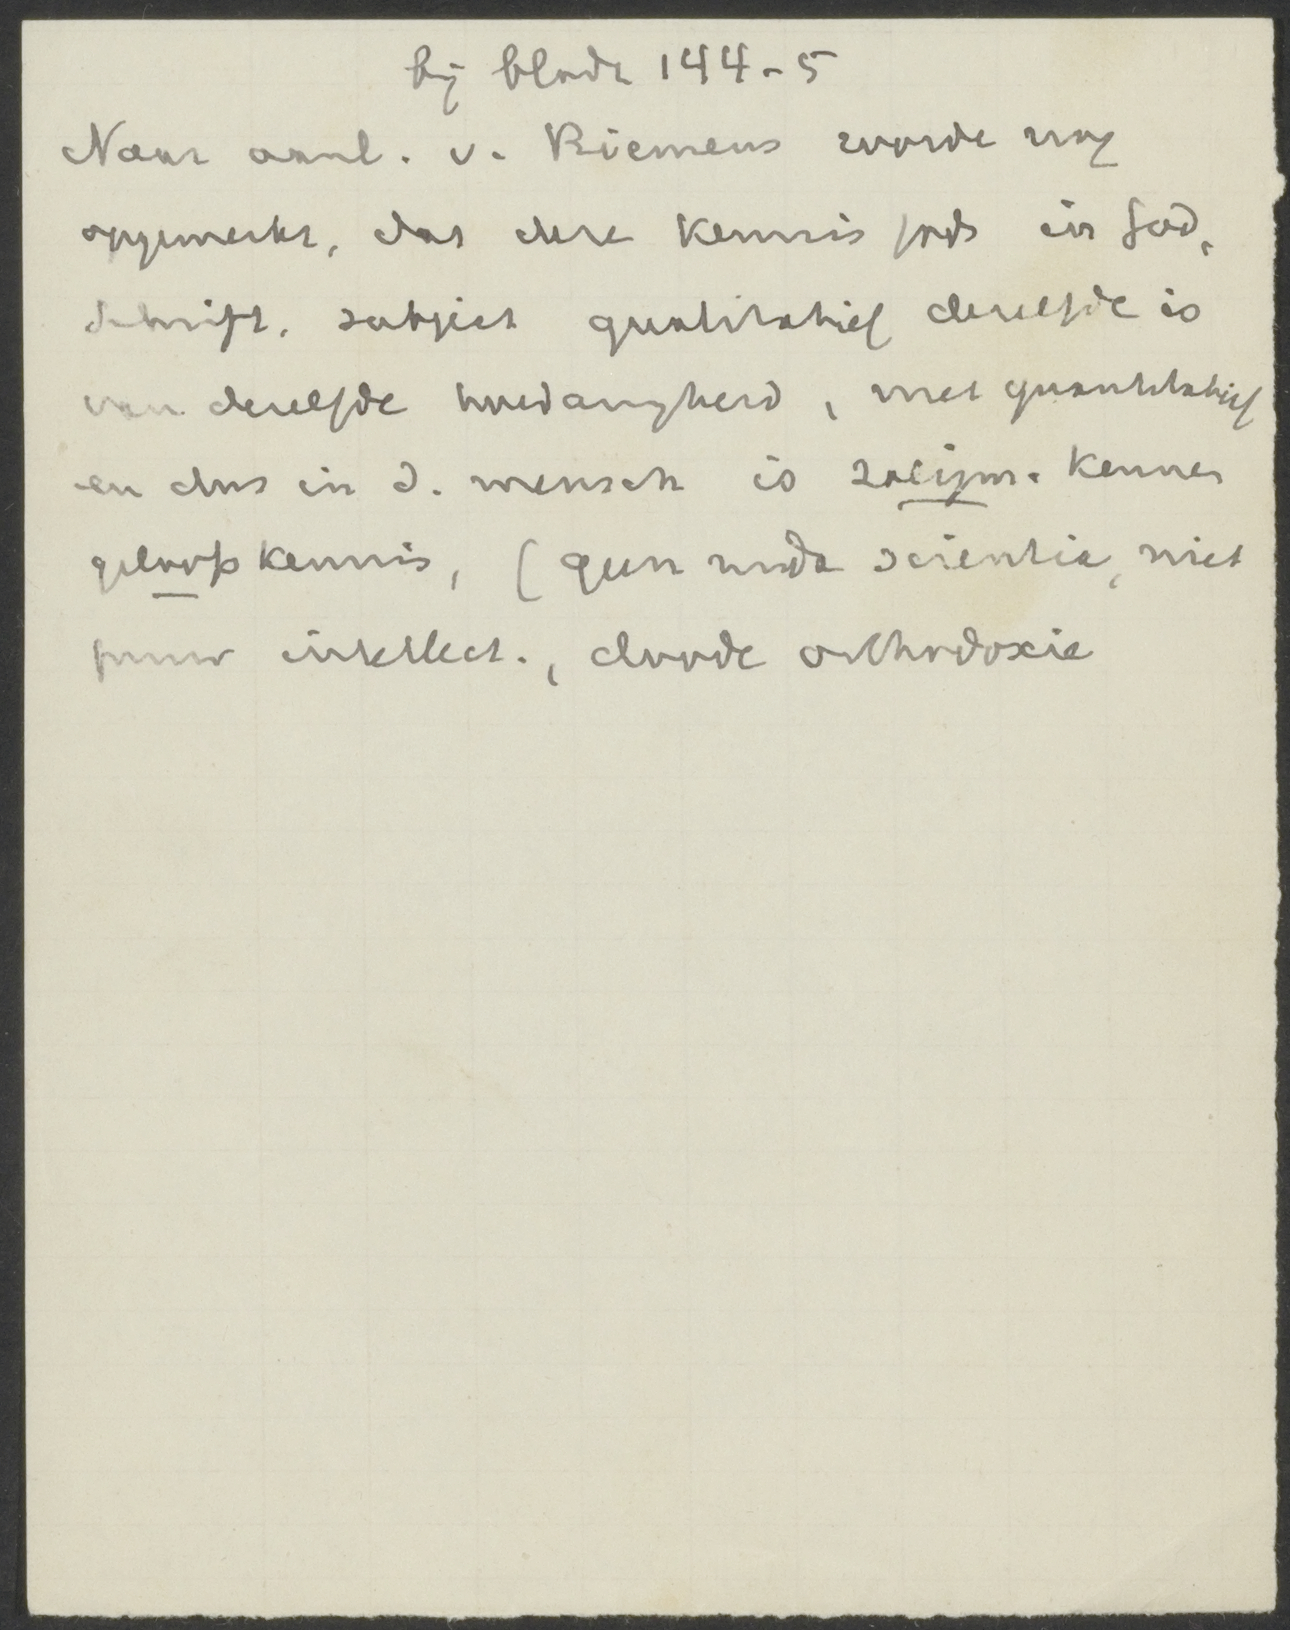 bij bladz 144-5
Naar aanl. v. Riemens worde nog
opgemerkt, dat deze kennis Gods in God,
Schrift, subject qualitatief dezelfde is
van dezelfde hoedanigheid, niet quantitatief
en dus in d. mensch is zaligm. kennis
geloofskennis, (geen nuda scientia, niet
puur intellect., doode orthodoxie